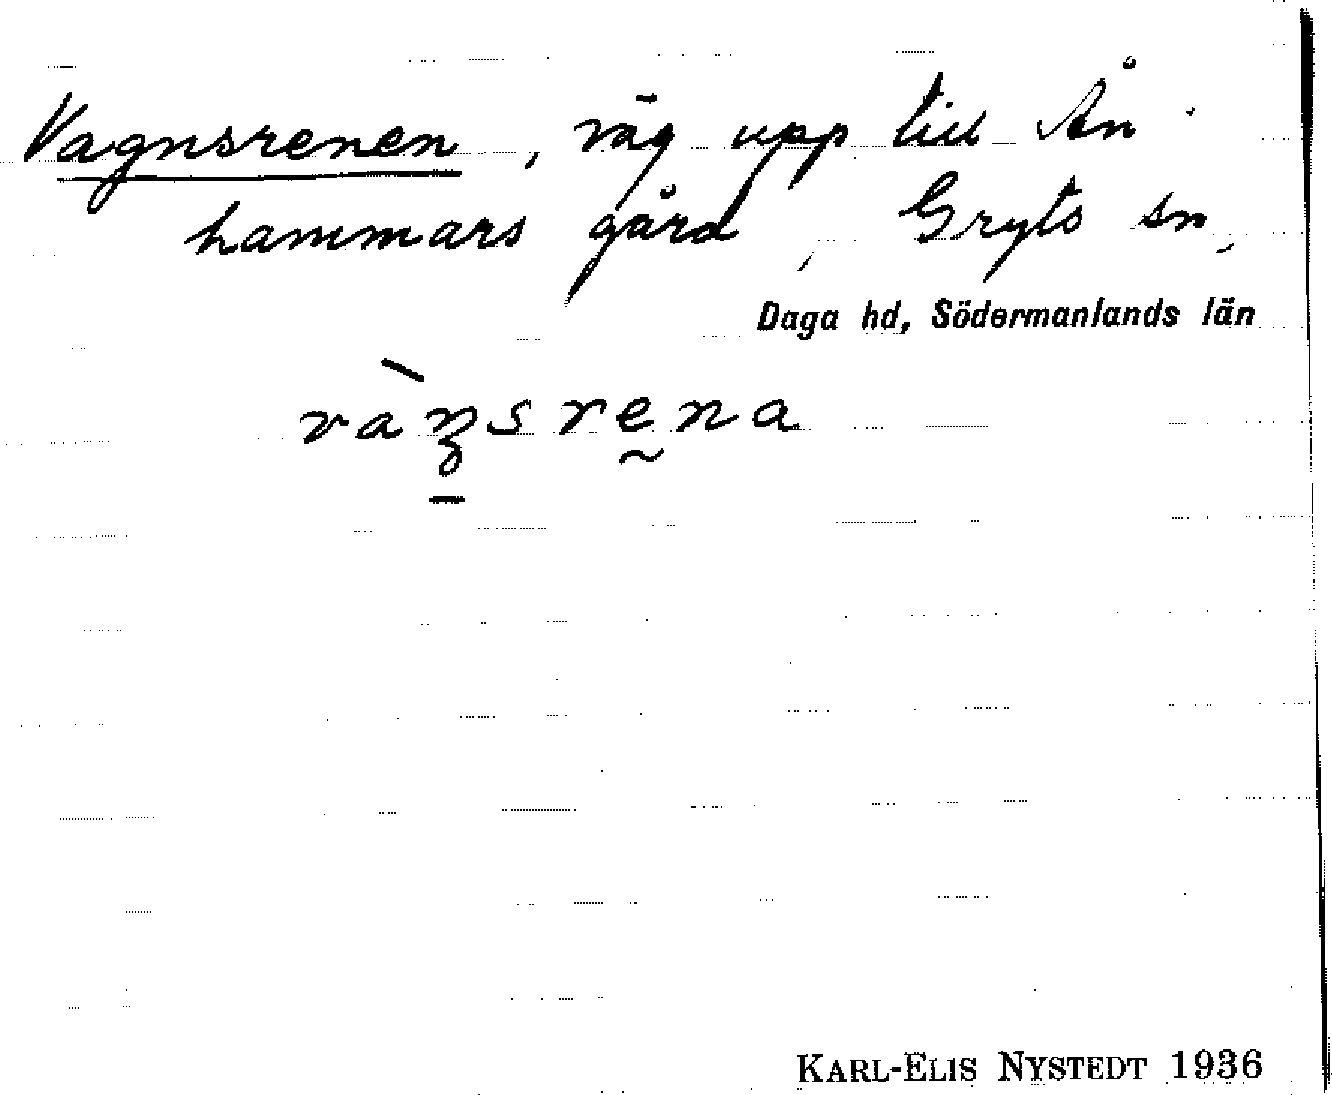 Vagnsrenen, väg upp till Ån
hammars gård, Gryts sn,
Daga hd, Södermanlands län
vàŋsrena
KARL-ELIS NYSTEDT 1936